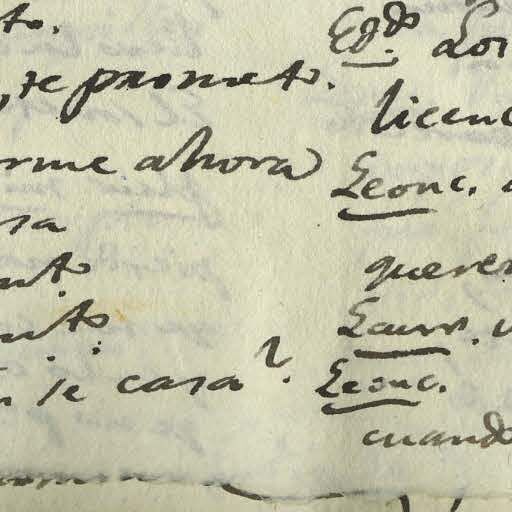 to.
, te prometo.
rme ahora
sa
nto
nto:
se casa?
Egdo. Los
licenc
Leonc.
querer
Laur.
Leonc.
cuando